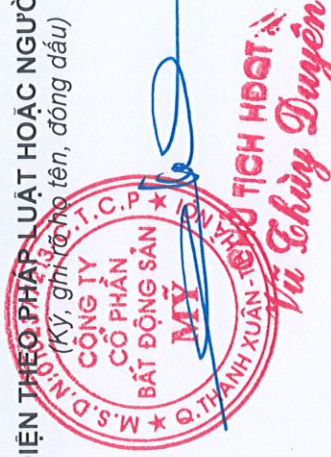 IỆN THEO PHÁP LUẬT HOẶC NGƯỜ
(Ký, ghi rõ họ tên, đóng dấu)
M.S.D.N:
C.T.C.P
CÔNG TY
CỔ PHẦN
BẤT ĐỘNG SẢN
MỸ
Q.THANH XUÂN -
TỊCH HĐQT
Vũ Thùy Duyên